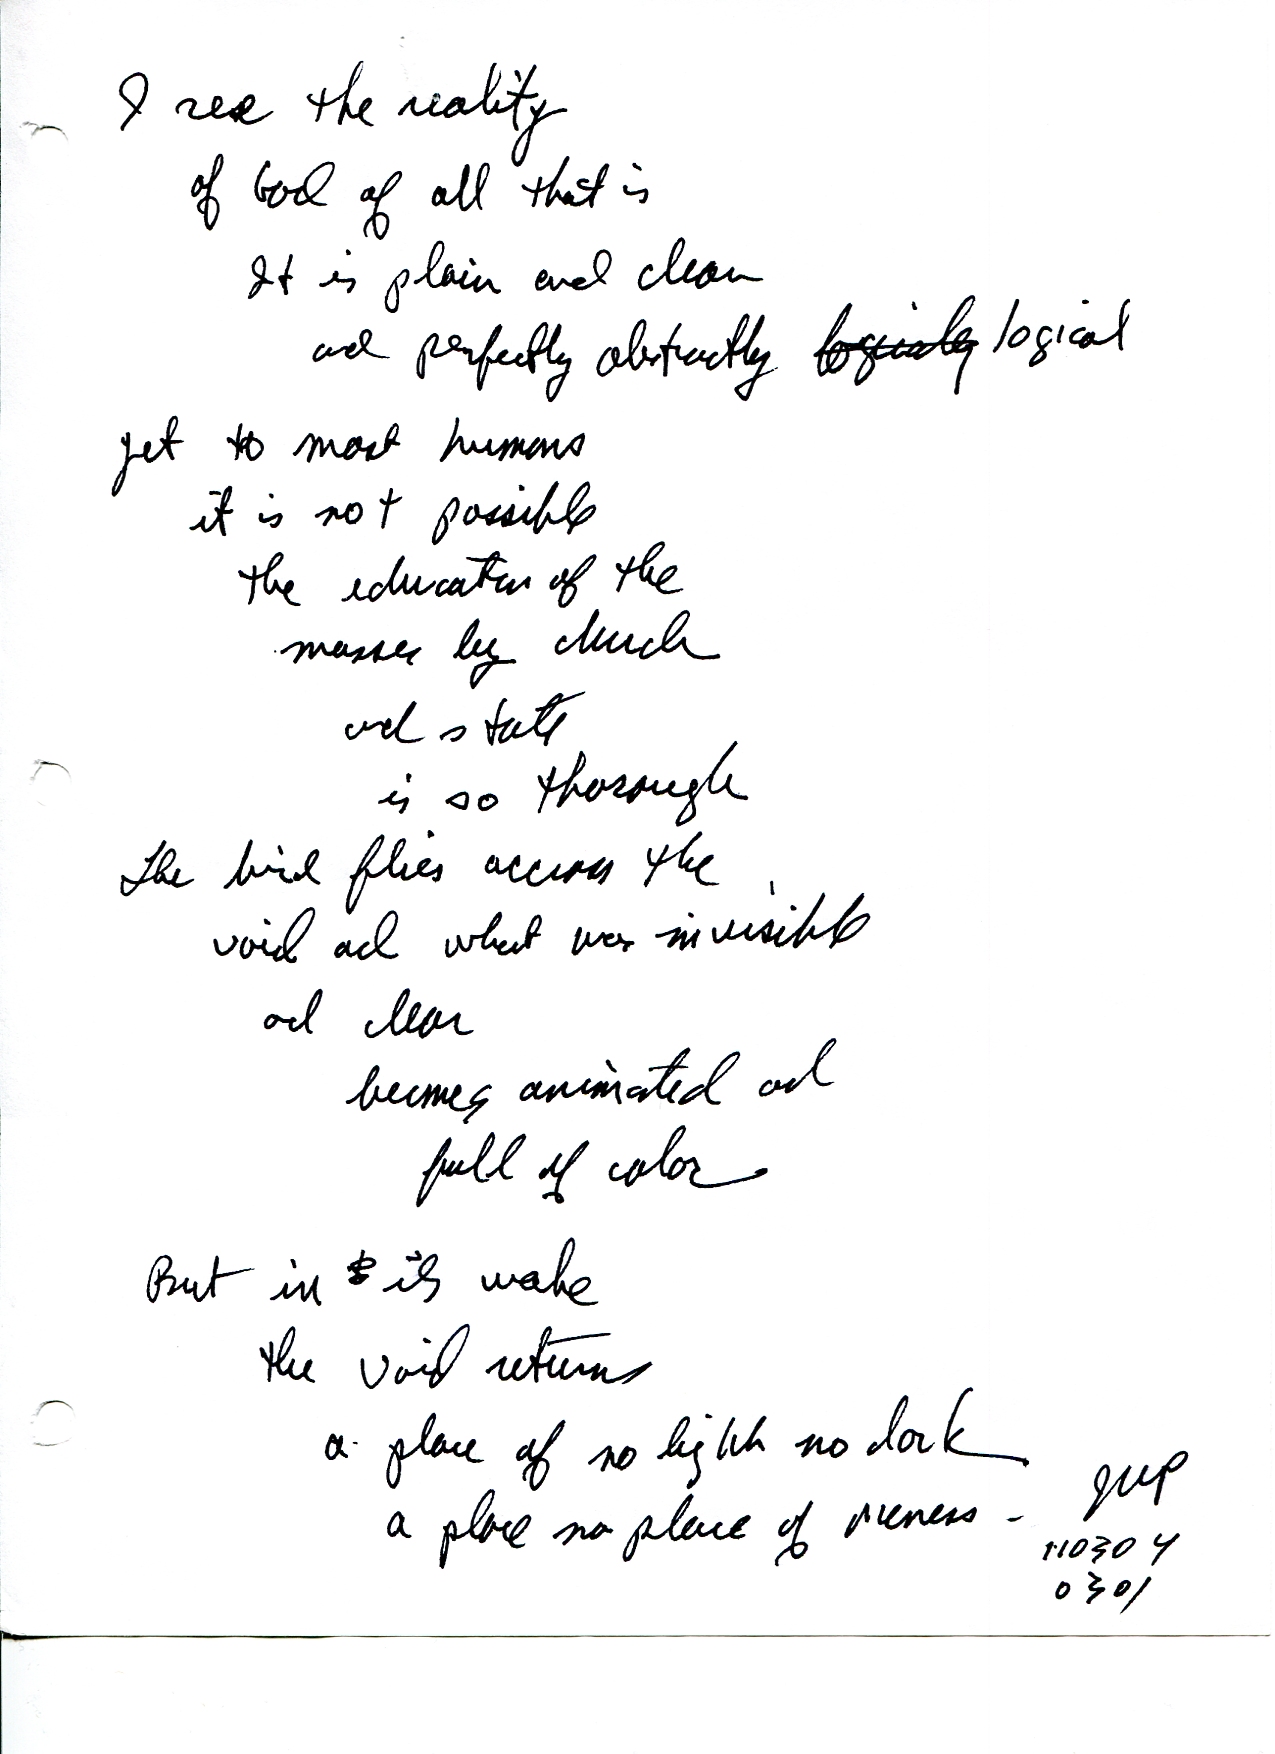 I see the reality
of God of all that is
It is plain and clean
and perfectly abstractly logicaly logical
yet to most humans
it is not possible
the education of the
masses by church
and state
is so thorough
The bird flies accross the
void and what was invisible
and clear
becomes animated and
full of color
But in its wake
the void returns
a place of no light no dark
a place no place of
110304
0301